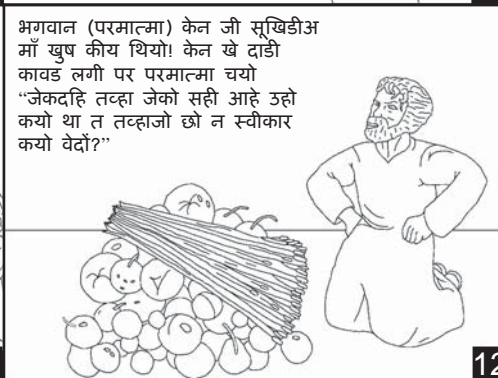 भगवान (परमात्मा) केन जी सूखिडीअ
माँ खुष कीय थियो! केन खे दाडी
कावड लगी पर परमात्मा चयो
“जेकदहि तव्हा जेको सही आहे उहो
कयो था त तव्हाजो छो न स्वीकार
कयो वेदों?”
12